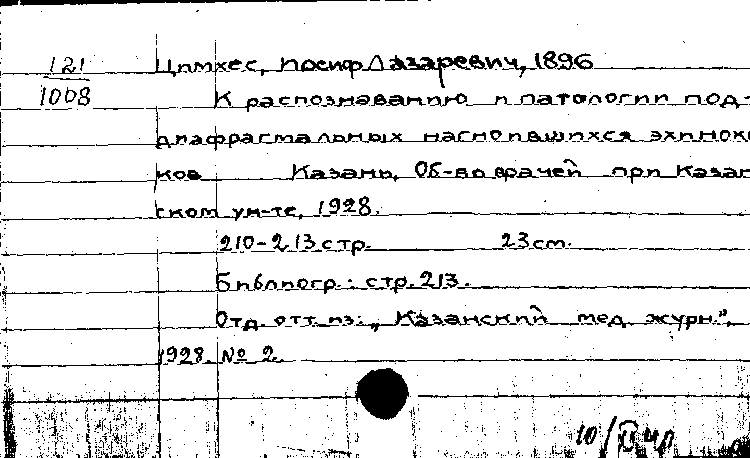 121
1008
Цимхес, Иосиф Лазаревич, 1896
К распознаванию и патологии под-
диафрагмальных нагноившихся эхинокк
ков Казань, Об-во врачей при Казан
ском ун-те, 1928.
210-213 стр. 23 см.
Библиогр.: стр. 213.
Отд. отт. из: „Казанский мед. журн.",
1928. № 2.
10/II